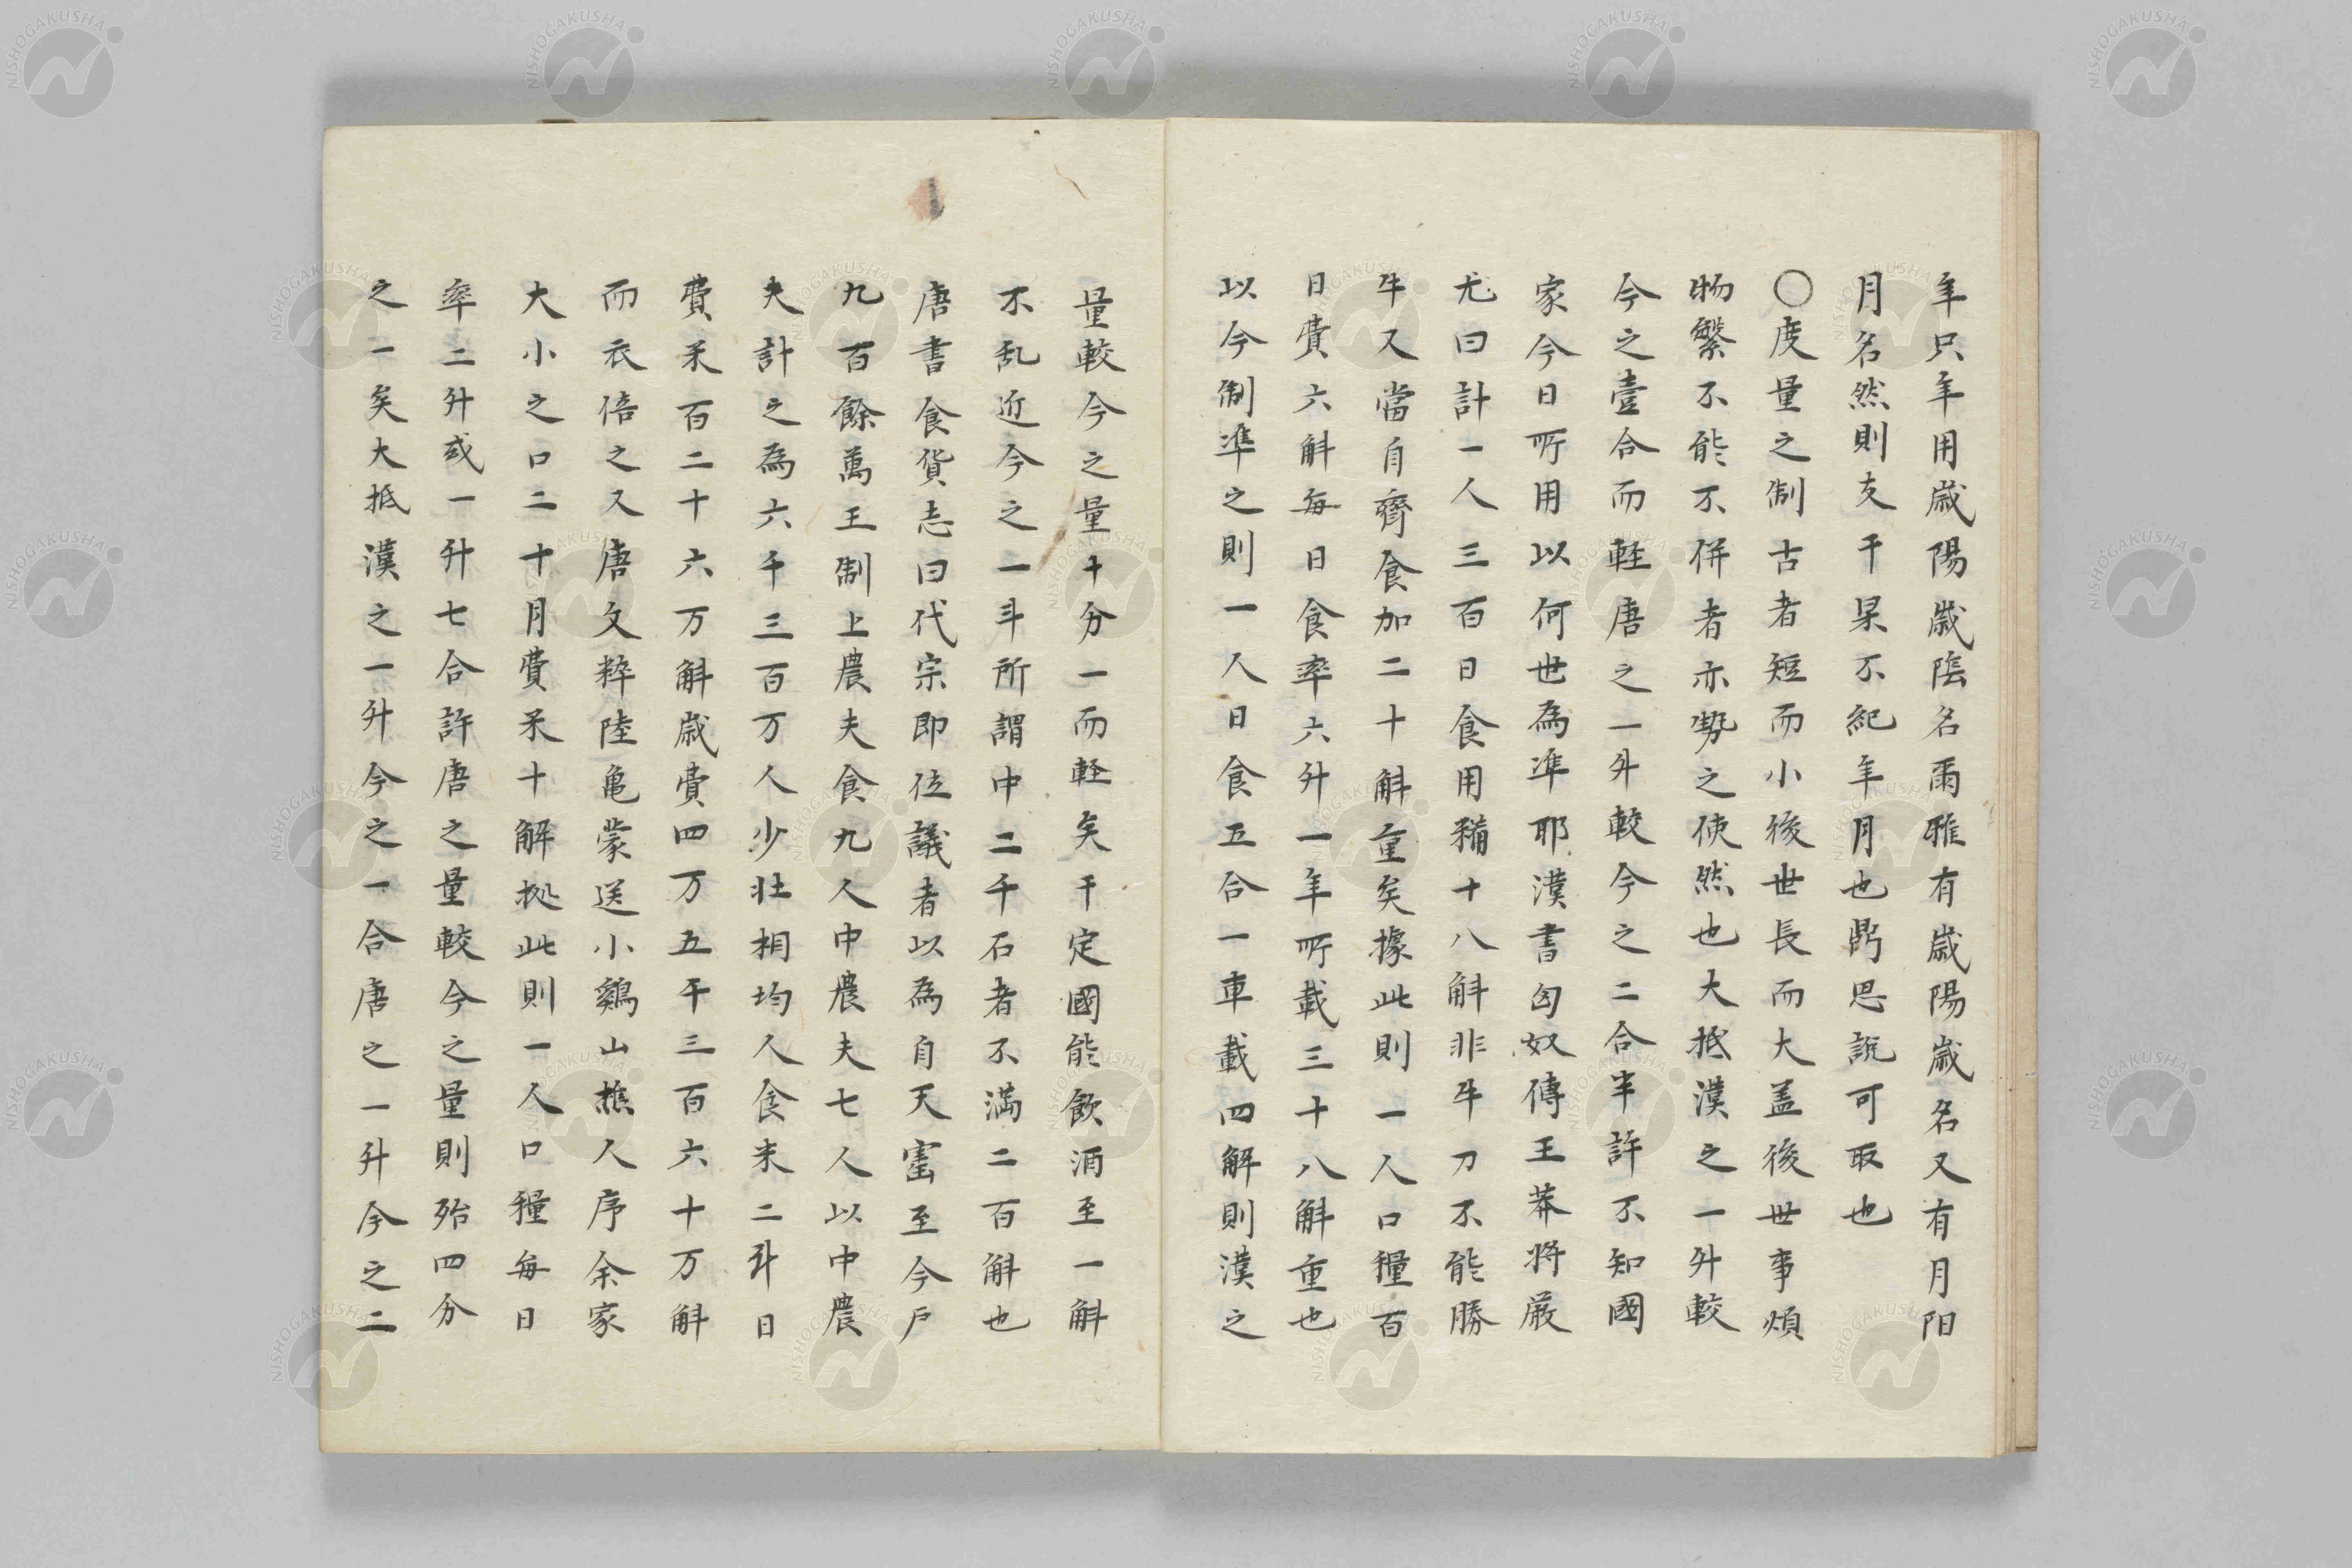 年只年用歳陽歳陰名爾雅有歳陽歳名又有月阳
月名然則支干果不紀年月也鄙思説可取也
〇度量之制古者短而小後世長而大盖後世事煩
物繁不能不併者亦勢之使然也大抵漢之一升較
今之壹合而軽唐之一升較今之二合半許不知國
家今日所用以何世為準耶漢書匈奴傳王莽将厳
尤曰計一人三百日食用糒十八斛非牛力不能勝
牛又當自齎食加二十斛重矣據此則一人口糧百
日費六斛毎日食率六升一年所載三十八斛重也
以今制準之則一人日食五合一車載四斛則漢之
量較今之量十分一而軽矣干定國能飲酒至一斛
不乱近今之一斗所謂中二千石者不満二百斛也
唐書食貨志曰代宗即位議者以為自天寳至今戸
九百餘萬王制上農夫食九人中農夫七人以中農
夫計之為六千三百万人少壮相均人食米二升日
費米百二十六万斛歳費四万五千三百六十万斛
而衣倍之又唐文粹陸亀蒙送小鷄山樵人序余家
大小之口二十月費米十斛拠此則一人口糧毎日
率二升或一升七合許唐之量較今之量則殆四分
之一矣大抵漢之一升今之一合唐之一升今之二